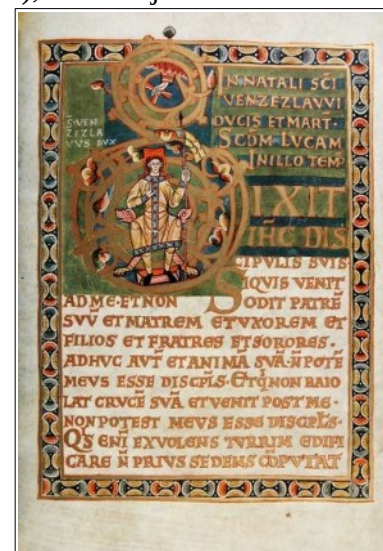 S VEN
ZEZLA
VVS DVX
IN NATALI SCI
VENZEZLAVVI
DVCIS ET MART.
SCDM LVCAM
IN ILLO TEMP
DIXIT
IHC DIS
CIPVLIS SVIS
SIQVIS VENIT
AD ME·ET NON ODIT PATRE
SVV ET MATREM ET VXOREM ET
FILIOS ET FRATRES ET SORORES·
ADHVC AVT ET ANIMA SVA·N POTE
MEVS ESSE DISCPLS·ET Q NON BAIO
LAT CRVCE SVA ET VENIT POST ME·
NON POTEST MEVS ESSE DISCPLS·
QS ENI EX VOLENS TVRRIM EDIFI
CARE N PRIVS SEDENS COPVTAT